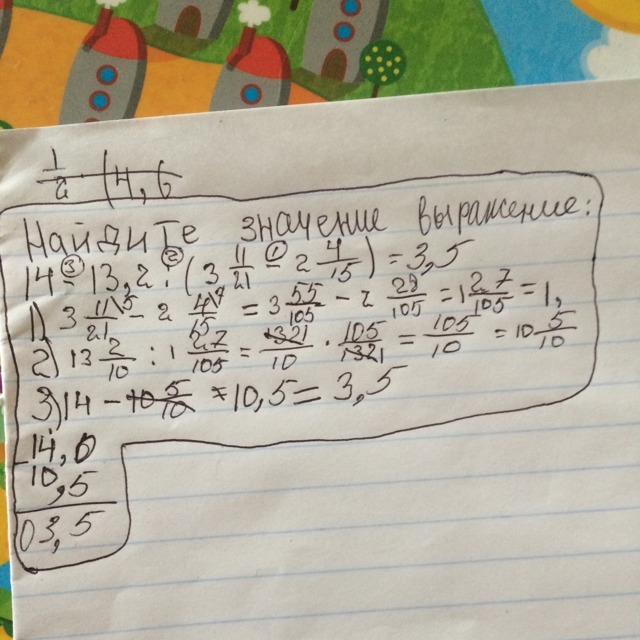 1/2 · (4,6
Найдите значение выражение:
14 - 13,2 : (3 11/21 - 2 4/15) = 3,5
1) 3 11/21 - 2 4/15 = 3 55/105 - 2 28/105 = 1 27/105 = 1,
2) 13 2/10 : 1 27/105 = 1321/10 · 105/1321 = 105/10 = 10 5/10
3) 14 - 10 5/10 = 10,5 = 3,5
14,0
10,5
03,5